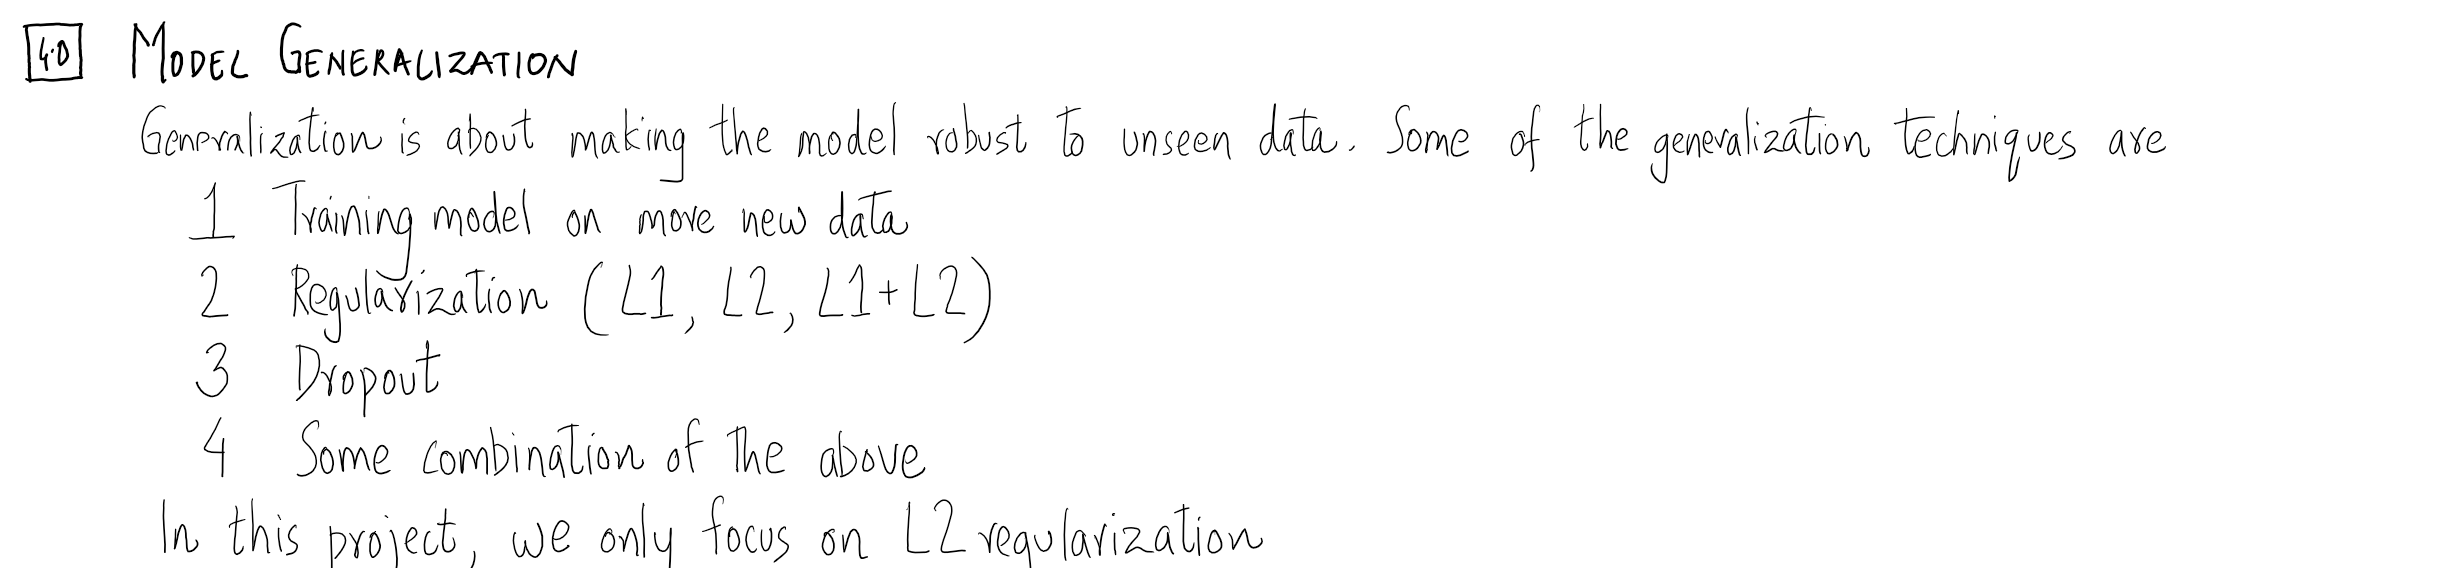 4.0 MODEL GENERALIZATION
Generalization is about making the model robust to unseen data. Some of the generalization techniques are
1 Training model on more new data
2 Regularization (L1, L2, L1+L2)
3 Dropout
4 Some combination of the above
In this project, we only focus on L2 regularization